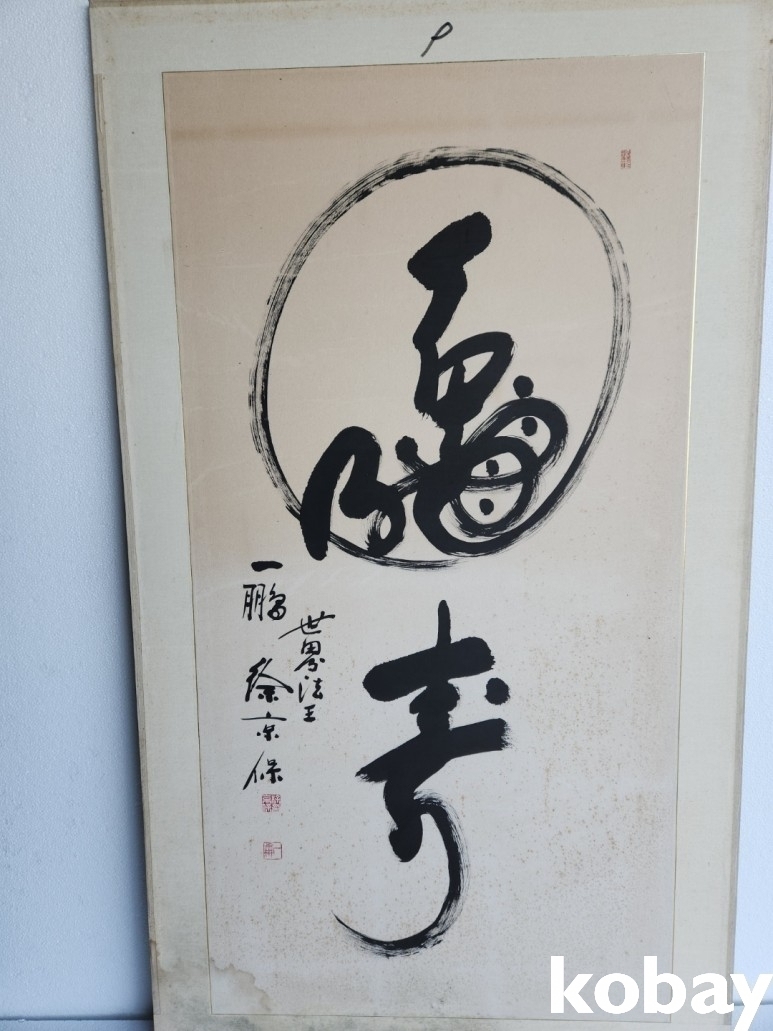 龜壽
世界法王
一鵬 徐京保
kobay